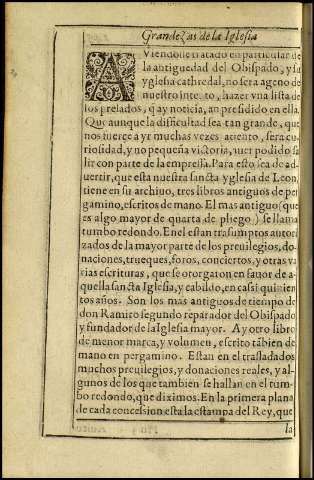 Grandezas de la Iglesia
AViendose tratado en particular de
la antiguedad del Obispado, y su
yglesia cathredal, no sera ageno de
nuestro intento, hazer vna lista de
los prelados, q ay noticia, an presidido en ella.
Que aunque la dificultad sea tan grande, que
nos fuerce a yr muchas vezes atiento, sera cu
riosidad, y no pequeña victoria, auer podido sa
lir con parte de la empressa. Para esto sea de ad-
uertir, que esta nuestra sancta yglesia de Leon,
tiene en su archiuo, tres libros antiguos de per
gamino, escritos de mano. El mas antiguo (que
es algo mayor de quarta de pliego) se llama
tumbo redondo. En el estan trasumptos autori
zados de la mayor parte de los preuilegios, do-
naciones, trueques, foros, conciertos, y otras va
rias escrituras, que se otorgaron en fauor de a-
quella sancta Iglesia, y cabildo, en casi quinien
tos años. Son los mas antiguos de tiempo de
don Ramiro segundo reparador del Obispado
y fundador de la Iglesia mayor. Ay otro libro
de menor marca, y volumen, escrito tãbien de
mano en pergamino. Estan en el trasladados
muchos preuilegios, y donaciones reales, y al-
gunos de los que tambien se hallan en el tum-
bo redondo, que diximos. En la primera plana
de cada concession esta la estampa del Rey, que
la